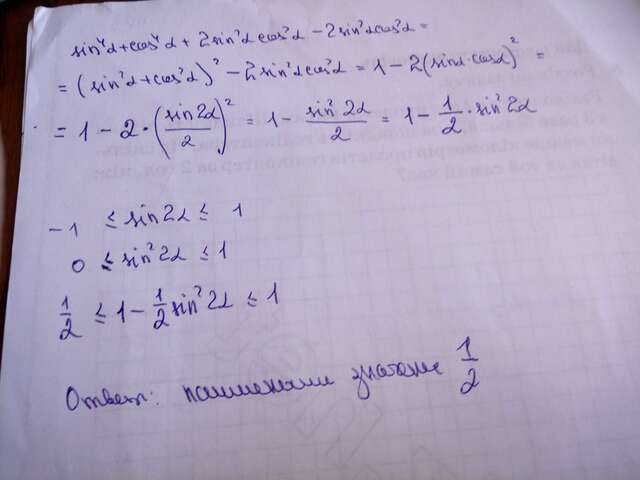 sin⁴α+cos⁴α + 2sin²α cos²α − 2sin²αcos²α =
= (sin²α + cos²α)² − 2sin²αcos²α = 1 − 2(sinα·cosα)² =
= 1 − 2·(sin2α/2)² = 1 − sin²2α/2 = 1 − 1/2·sin²2α
−1 ≤ sin2α ≤ 1
0 ≤ sin²2α ≤ 1
1/2 ≤ 1 − 1/2 sin²2α ≤ 1
Ответ: значение 1/2